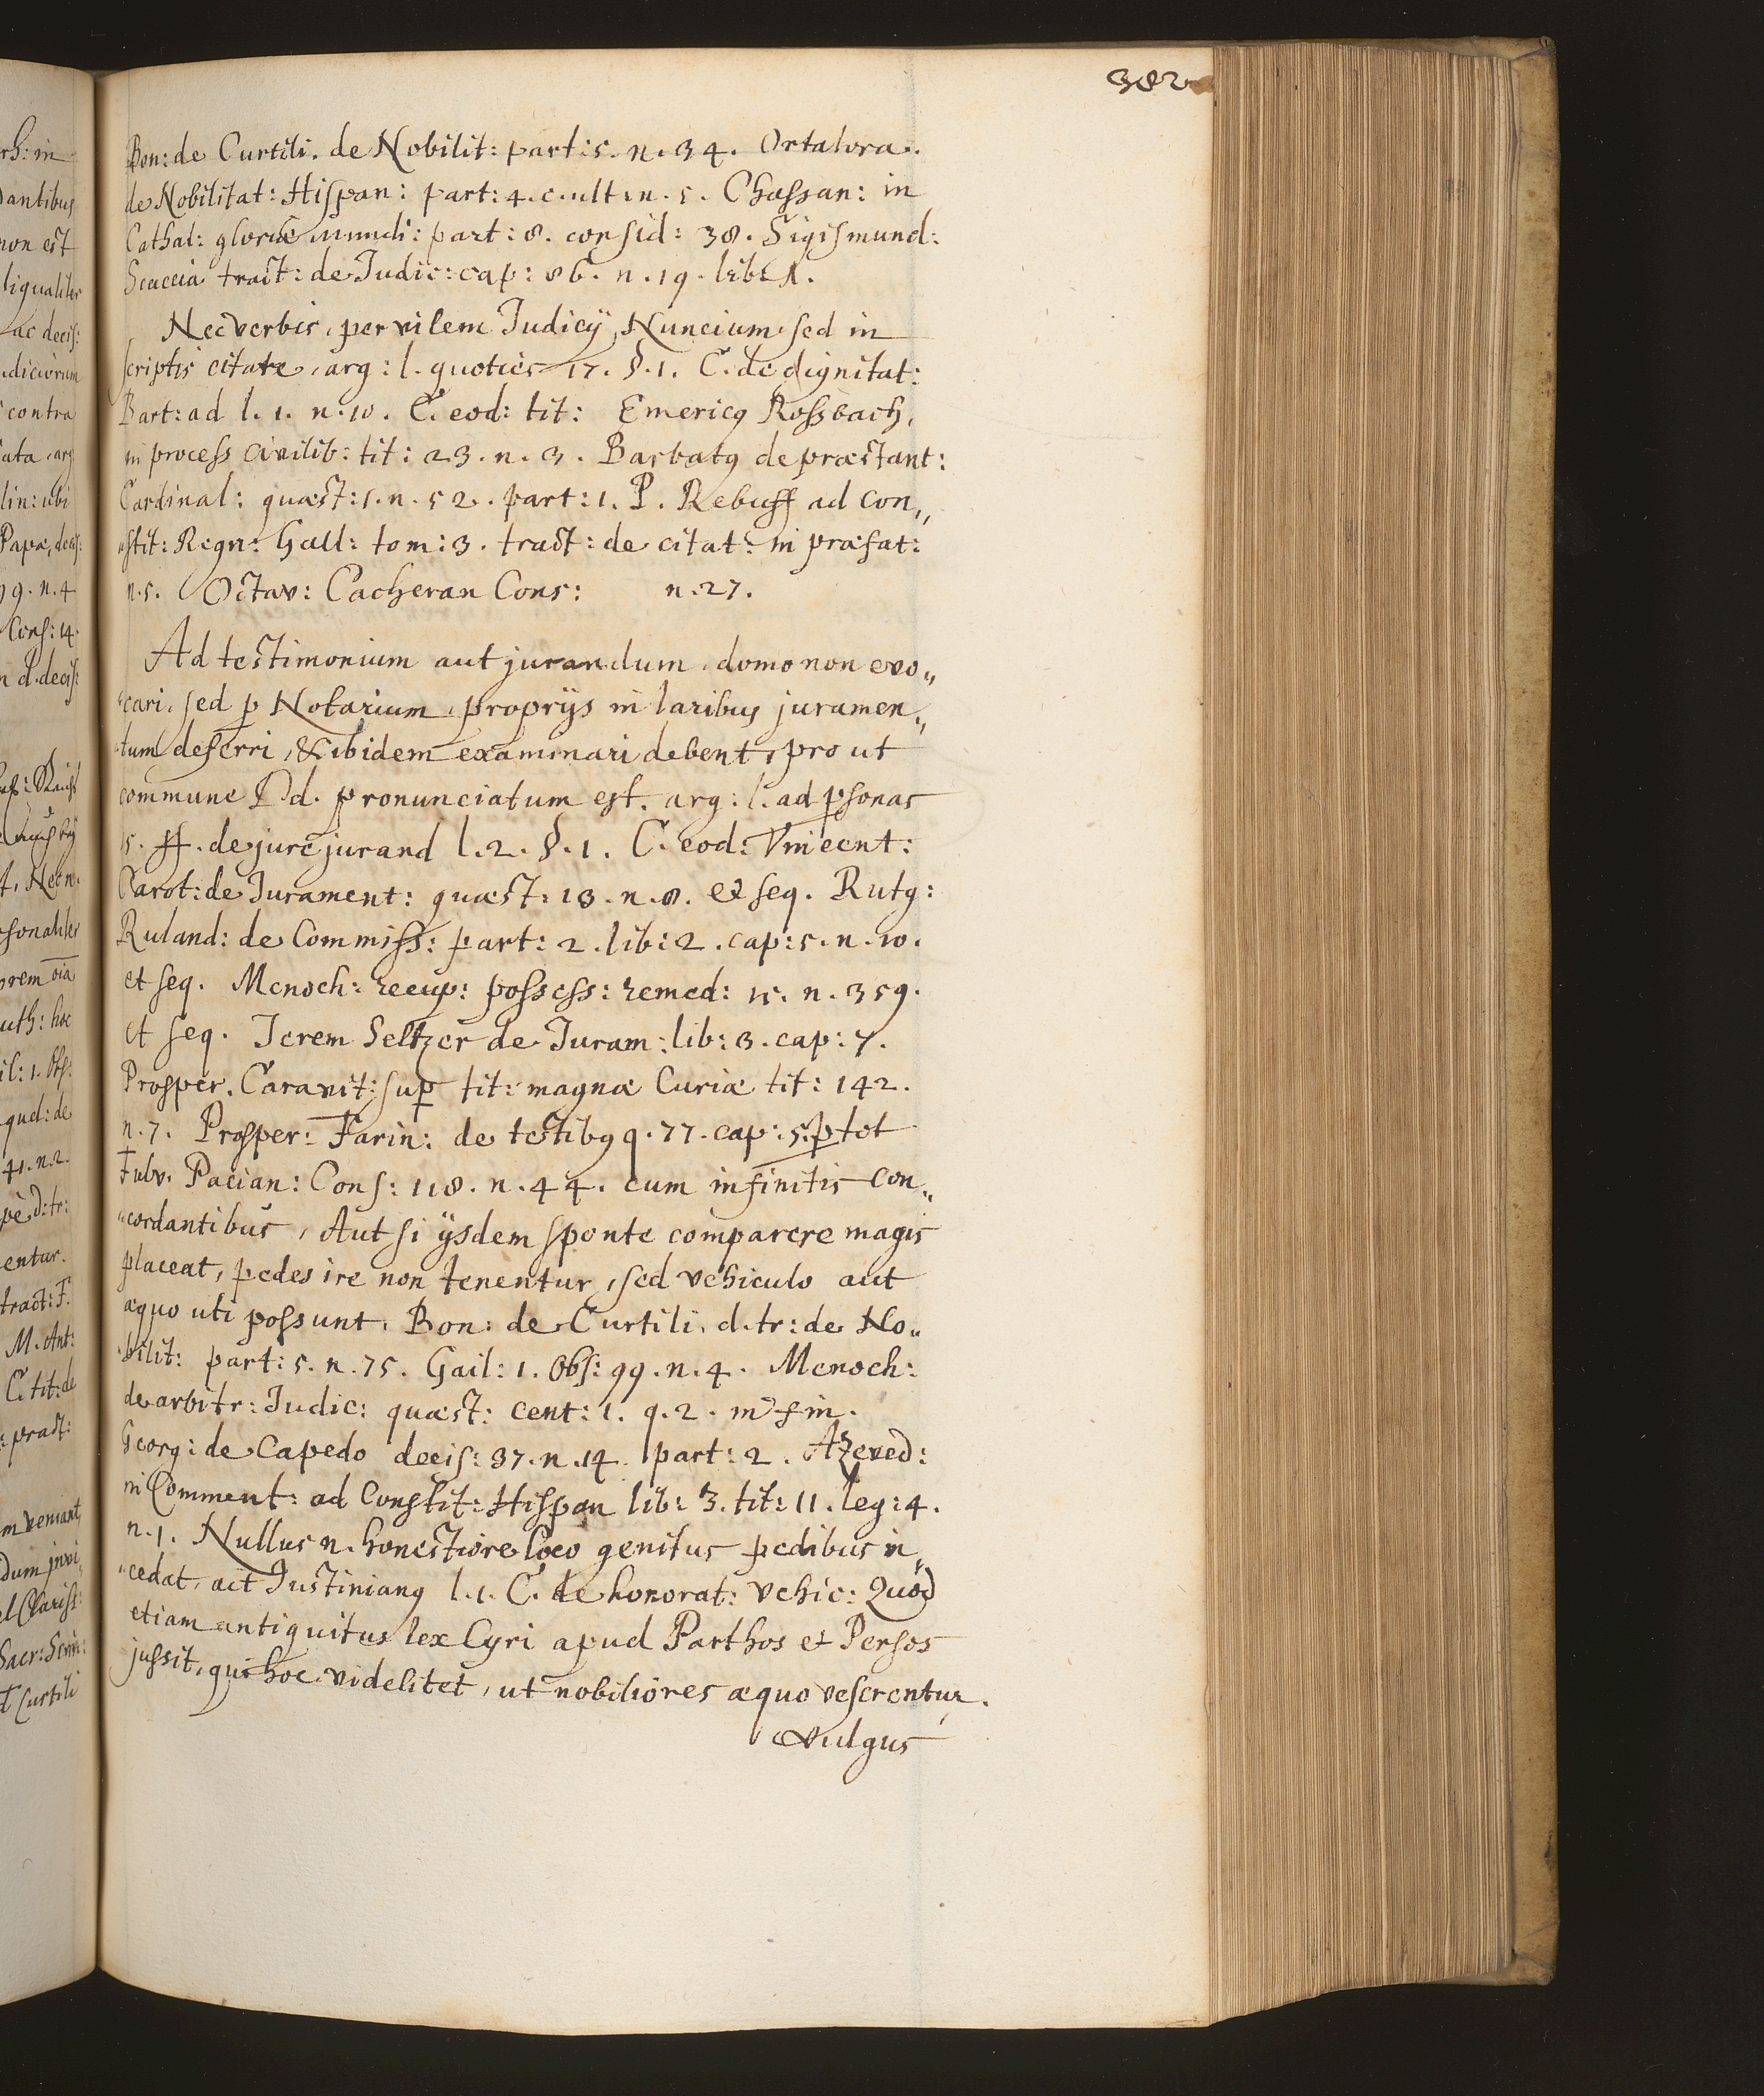 382
Bon: de Curtili. de Nobilit: part: 5. n. 34. Ortalora.
de Nobilitat: Hispan: part: 4. c. ult: n. 5. Chassan: in
Cathal: gloriæ mundi: part: 8. consid: 38. Sigismund:
Scaccia tract: de Judic: cap: 86. n. 19. lib: 1.
Nec verbis, per vilem Judicÿ, Nuncium sed in
scriptis citare, arg: l. quoties 17. §. 1. C. de dignitat:
Bart: ad l. 1. n. 10. C. eod: tit: Emericq Rossbach,
in process civilib: tit: 23. n. 3. Barbatq de præstant:
Cardinal: quæst: 1. n. 52. part: 1. P. Rebuff ad con„
„stit: Regn: Gall: tom: 3. tract: de citat: in præfat:
n. 5. Octav: Cacheran Cons: n. 27.
Ad testimonium aut jurandum domo non evo„
„cari, sed p Notarium, proprÿs in laribus juramen„
„tum deferri, & ibidem examinari debent, pro ut
commune Dd. pronunciatum est. arg: l. ad psonas
15. ff. de jure jurand l. 2. §. 1. C. eod: Vincent:
Carot: de Jurament: quæst: 13. n. 8. et seq. Rutg:
Ruland: de Commiss: part: 2. lib: 2. cap: 5. n. 10.
et seq. Menoch: recup: possess: remed: 15. n. 359.
et seq. Jerem Seltzer de Juram: lib: 3. cap: 7.
Prosper. Caravit: sup tit: magnæ Curiæ tit: 142.
n. 7. Prosper: Farin: de testibq q. 77. cap: 5. p tot
Fulv. Pacian: Cons: 118. n. 44. cum infinitis con„
„cordantibus, Aut si ÿsdem sponte comparere magis
placeat, pedes ire non tenentur, sed vehiculo aut
æquo uti possunt, Bon: de Curtili. d. tr: de No„
„bilit: part: 5. n. 75. Gail: 1. Obs: 99. n. 4. Menoch:
de arbitr: Judic: quæst: cent: 1. q. 2. in fin.
Georg: de Capedo decis: 37. n. 14. part: 2. Azeved:
in Comment: ad Constit: Hispan lib: 3. tit: 11. leg: 4.
n. 1. Nullus n. honestiore loco genitus pedibus in„
„cedat, ait Justinianq l. 1. C. de honorat: vehic: Quod
etiam antiquitus lex Cyri apud Parthos et Persos
jussit, qui hoc videlitet, ut nobiliores æquo veserentur.
vulgus